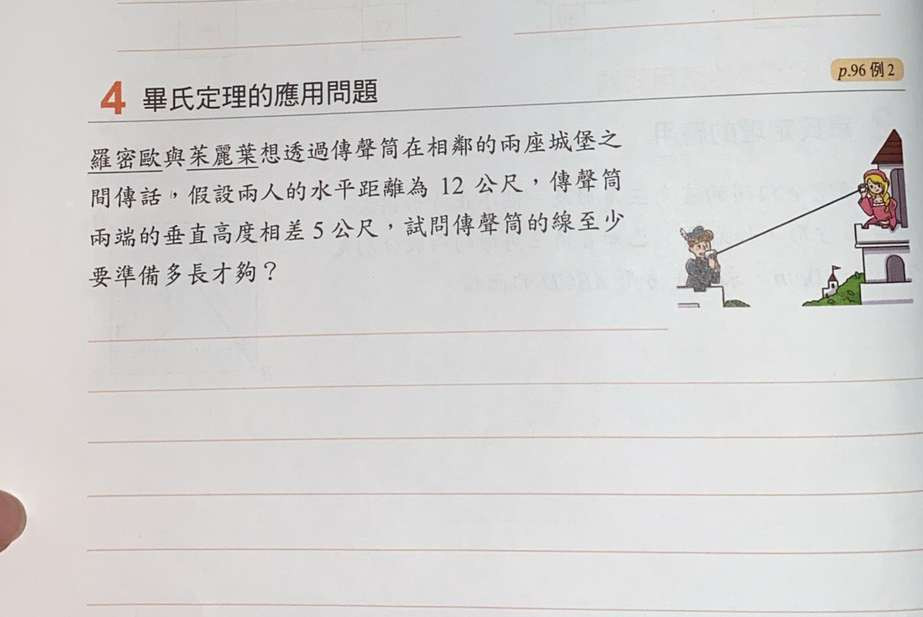 p.96 例 2
4 畢氏定理的應用問題
羅密歐與茱麗葉想透過傳聲筒在相鄰的兩座城堡之
間傳話，假設兩人的水平距離為 12 公尺，傳聲筒
兩端的垂直高度相差 5 公尺，試問傳聲筒的線至少
要準備多長才夠？